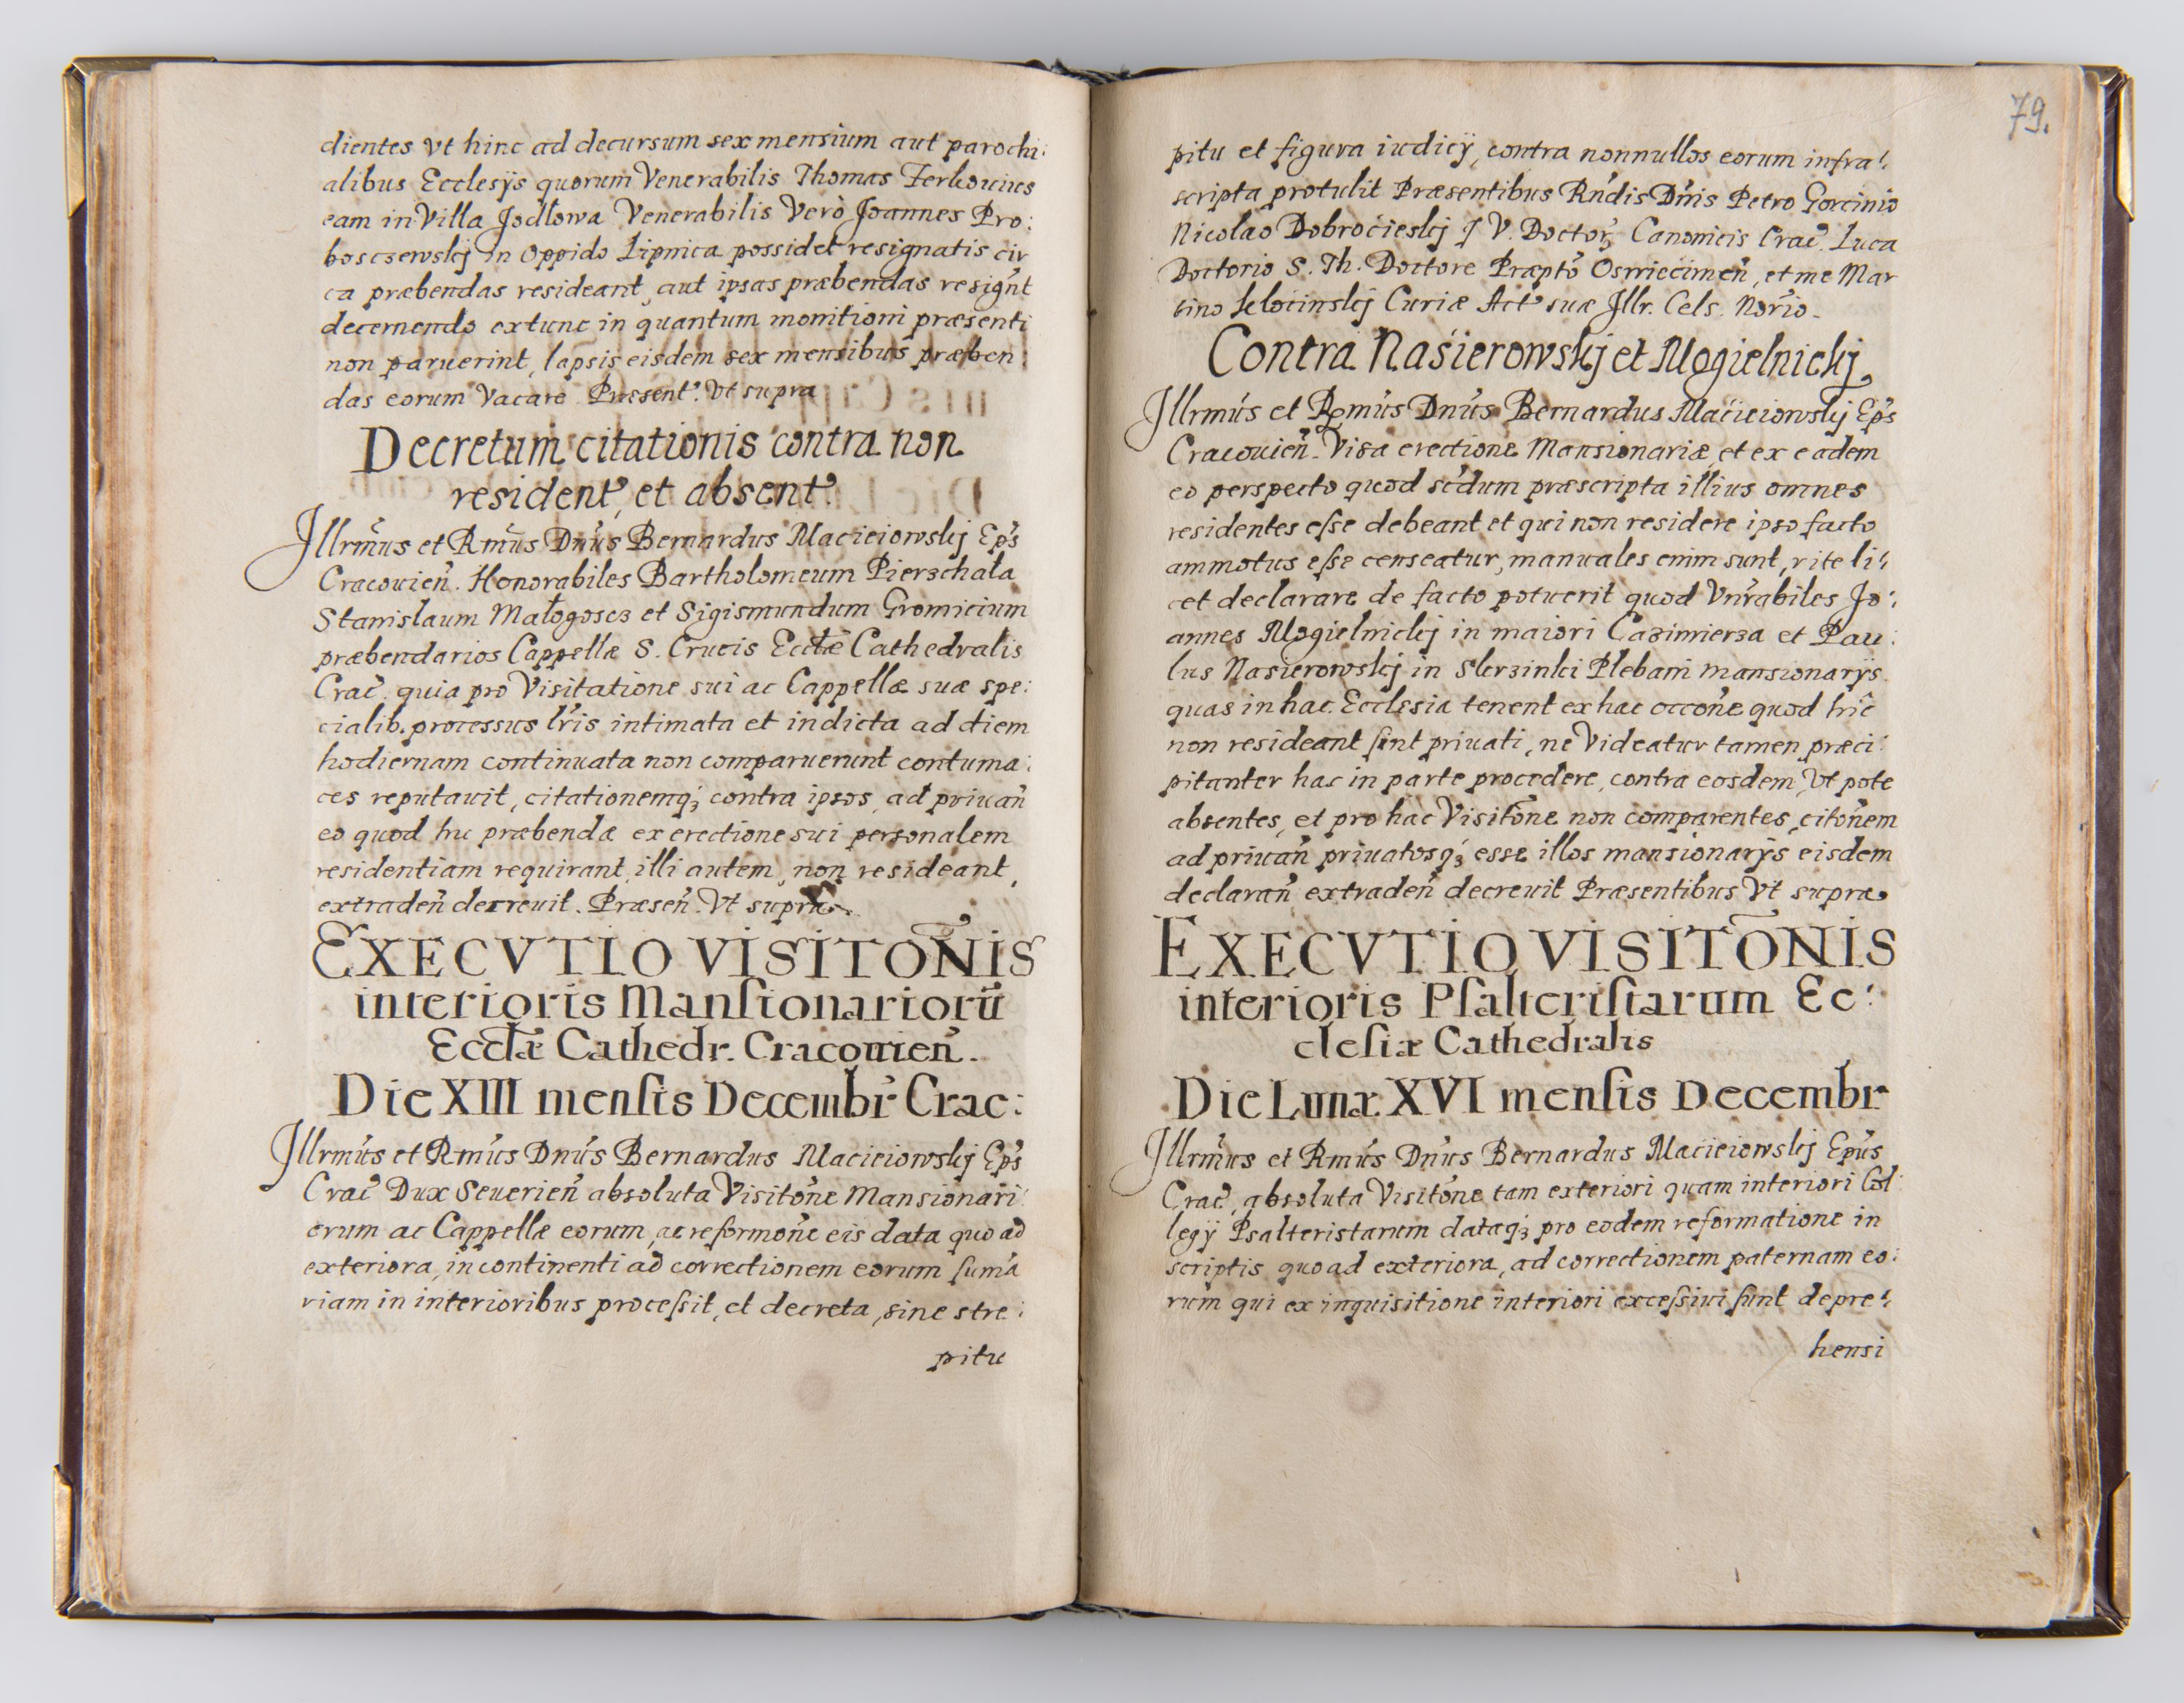 dientes vt hinc ad decursum sex mensium aut parochi:
alibus Ecclesÿs quorum Venerabilis Thomas Zerkouius
eam in Villa Jodłowa Venerabilis Verò Joannes Pro:
bosczewskj in Oppido Lipnica possidet resignatis cir
ca præbendas resideant, aut ipsas præbendas resigńt
decernendo extunc in quantum monitioni præsenti
non paruerint, lapsis eisdem sex mensibus præben:
das eorum Vacare Præsent. Vt supra
Decretum citationis contra non
resident, et absent
Jllrmus et Rmus Dnus Bernardus Macieiowskj Eps
Cracouien. Honorabiles Bartholomeum Pierzchała
Stanislaum Małogoscz et Sigismundum Gromicium
præbendarios Cappellæ S. Crucis Ecctæ Cathedralis
Crac. quia pro Visitatione sui ac Cappellæ suæ spe:
cialib. processus lris intimata et indicta ad diem
hodiernam continuata non comparuerunt contuma:
ces reputauit, citationemq; contra ipsos, ad priuan
eo quod hu præbendæ ex erectione sui personalem
residentiam requirant, illi autem, non resideant,
extraden decreuit. Præsen. Vt supra.
EXECVTIO VISITONIS
interioris Manſionariorũ
Ecctæ Cathedr. Cracouien.
Die XIII menſis Decembr Crac:
Jllrmus et Rmus Dnus Bernardus Macieiowskj Eps
Crac Dux Seuerien absoluta Visitone Mansionari:
orum ac Cappellæ eorum, ac reformone eis data quo ad
exteriora, incontinenti ad correctionem eorum ſuma
riam in interioribus proceſsit, et decreta, sine stre:
pitu
79.
pitu et figura iudicÿ, contra nonnullos eorum infra:
scripta protulit Præsentibus Rndis Dnis Petro Gorcinio
Nicolao Dobrocieskj J V. Doctor, Canonicis Crac. Luca
Doctorio S. Th. Doctore Præpto Oswiecimen, et me Mar
tino Kłocinskj Curiæ Act suæ Jllr. Cels. Norio.
Contra Nasierowskj et Mogielnickj
Jllrmus et Rmus Dnus Bernardus Macieiowskj Eps
Cracouien. Visa erectione Mansionariæ, et ex eadem
eo perspecto quod scdum præscripta illius omnes
residentes eſse debeant et qui non residere ipso facto
ammotus eſse censeatur, manuales enim sunt, rite li:
cet declarare de facto potuerit quod Vnrabiles Jo:
annes Mogielnickj in maiori Cazimierza et Pau:
lus Nasierowskj in Skrzinki Plebani mansionarÿs
quas in hac Ecclesia tenent ex hac occone quod hic
non resideant ſint priuati, ne Videatur tamen præci:
pitanter hac in parte procedere, contra eosdem, Vt pote
absentes, et pro hac Visitone non comparentes, citonem
ad priuan priuatosq; esse illos mansionarÿs eisdem
declaran extraden decreuit Præsentibus Vt supra
EXECVTIO VISITONIS
interioris Pſalteriſtarum Ec:
cleſiæ Cathedralis
Die Lunæ XVI menſis Decembr
Jllrmus et Rmus Dnus Bernardus Macieiowskj Epus
Crac, absoluta Visitone tam exteriori quam interiori Col
legÿ Psalteristarum dataq; pro eodem reformatione in
scriptis quoad exteriora, ad correctionem paternam eo:
rum qui ex inquisitione interiori exceſsiui ſunt depre:
hensi